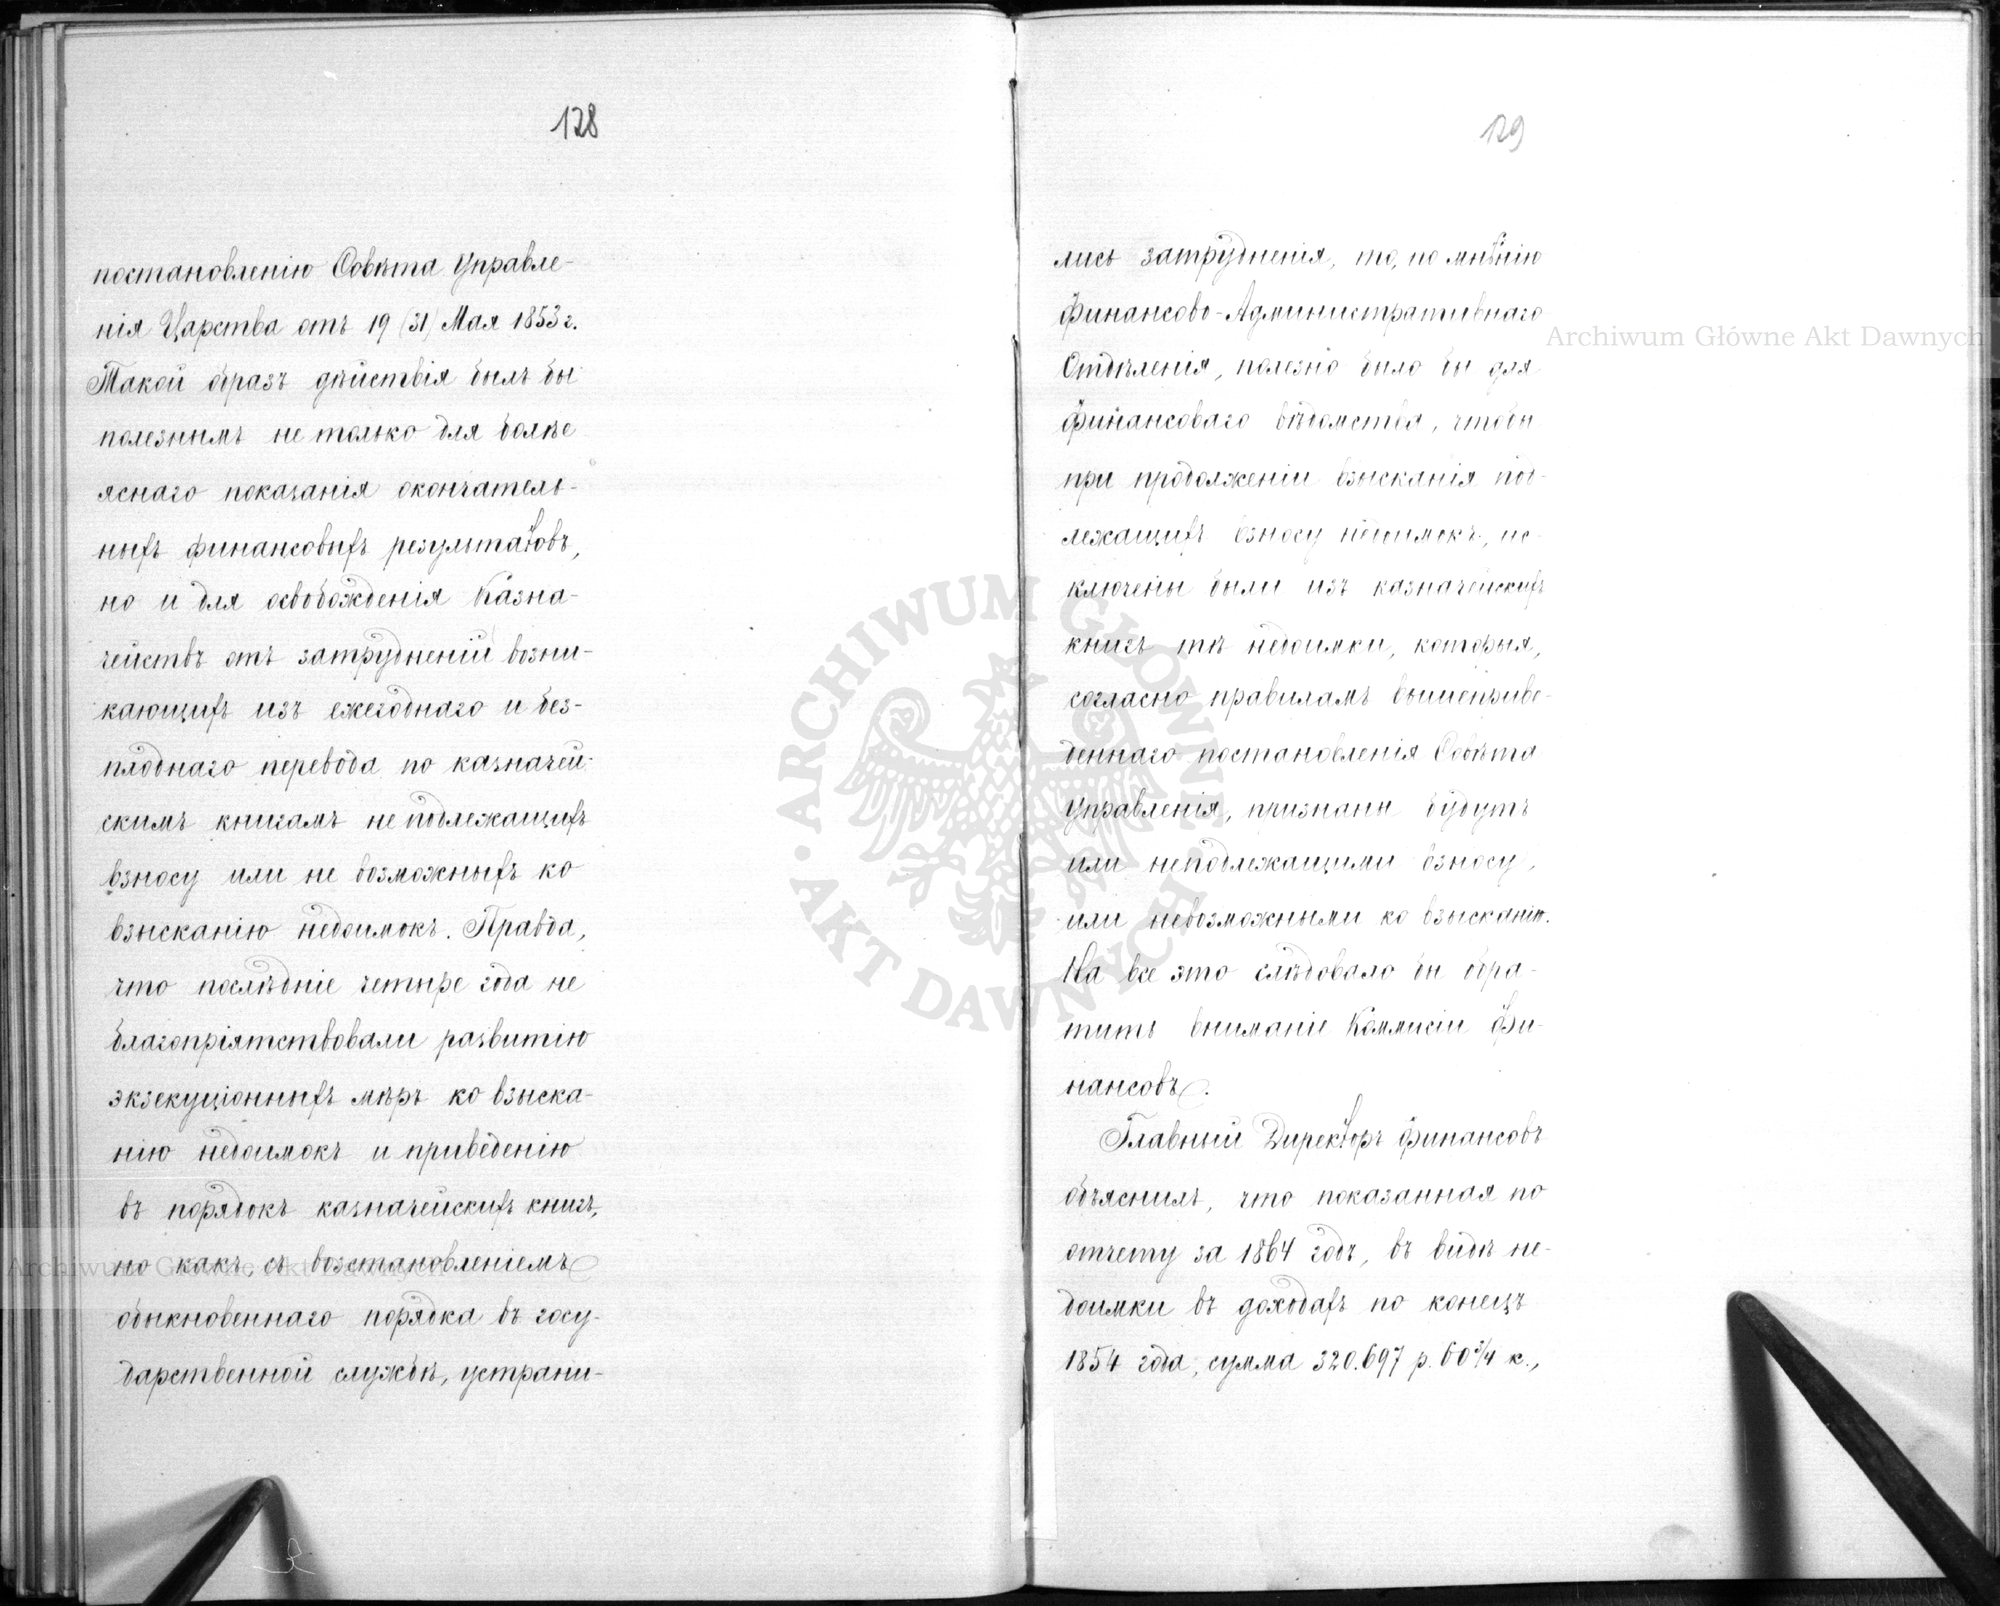 128
постановленію Совѣта Управле-
нія Царства отъ 19 (31) Мая 1853 г.
Такой образъ дѣйствія былъ бы
полезнымъ не только для болѣе
яснаго показанія окончатель-
ныхъ финансовыхъ результатовъ,
но и для освобожденія Казна-
чействъ отъ затрудненій возни-
кающихъ изъ ежегоднаго и без-
плоднаго перевода по казначей-
скимъ книгамъ неподлежащихъ
взносу или не возможныхъ ко
взысканію недоимокъ. Правда,
что послѣдніе четыре года не
благопріятствовали развитію
экзекуціонныхъ мѣръ ко взыска-
нію недоимокъ и приведенію
въ порядокъ казначейскихъ книгъ,
но какъ, съ возстановленіемъ
обыкновеннаго порядка въ госу-
дарственной службѣ, устрани-
129
лись затрудненія, то, по мнѣнію
Финансово-Административнаго
Отдѣленія, полезно было бы для
Финансоваго вѣдомства, чтобы
при продолженіи взысканія под-
лежащихъ взносу недоимокъ, ис-
ключены были изъ казначейскихъ
книгъ тѣ недоимки, которыя,
согласно правиламъ вышеприве-
деннаго постановленія Совѣта
Управленія, признаны будутъ
или неподлежащими взносу,
или невозможными ко взысканію.
На все это слѣдовало бы обра-
тить вниманіе Коммисіи Фи-
нансовъ.
Главный Директоръ Финансовъ
объяснилъ, что показанная по
отчету за 1864 годъ, въ видѣ не-
доимки въ доходахъ по конецъ
1854 года, сумма 320.697 р. 60¾ к.,
Archiwum Główne Akt Dawnych
Archiwum Główne Akt Dawnych
ARCHIWUM GŁÓWNE AKT DAWNYCH